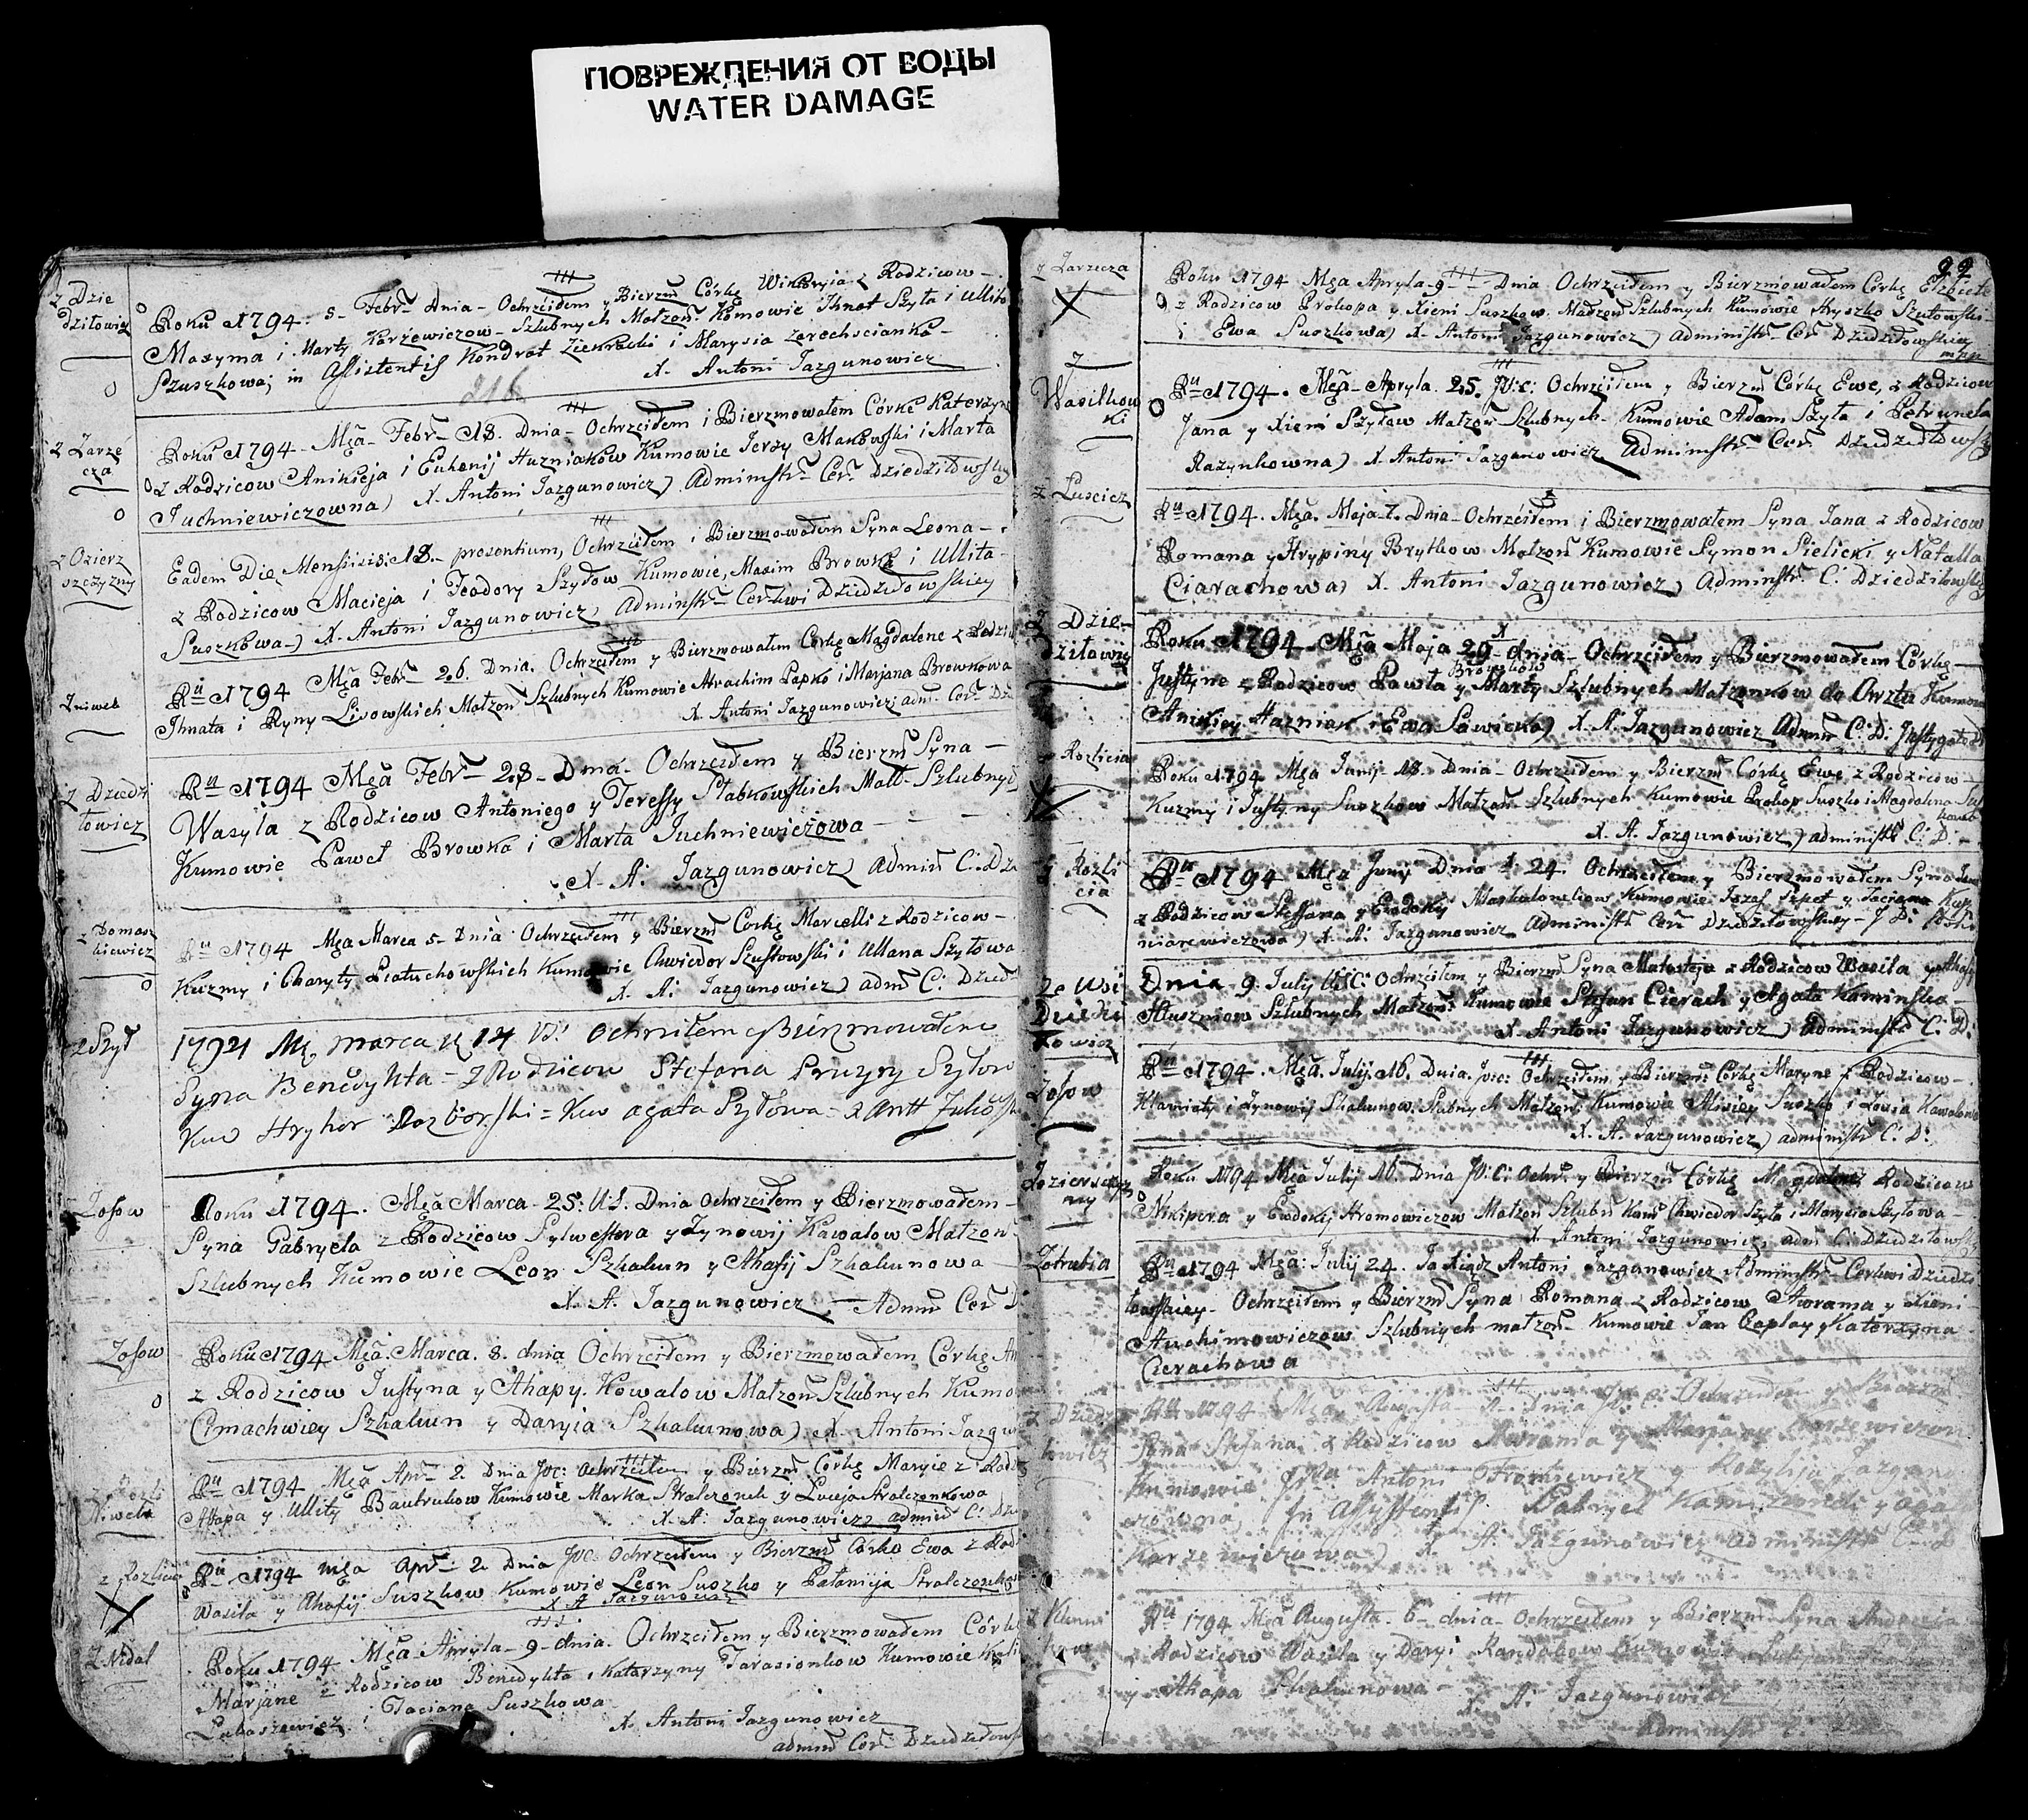 ПОВРЕЖДЕНИЯ ОТ ВОДЫ
WATER DAMAGE
z Dzie
dziłowicz
Roku 1794. 5- Febr- Dnia- Ochrzciłem y Bierzm Córkę Wiktoryia z Rodzicow-
Maxyma i Marty Karżewiczow- Szlubnych Małzon- Komowie Ihnat Szyła i Ullita
Szuszkowa; in Assistentis Kondrat Ziekracki i Marysia Zerechscianka-
X. Antoni Jazgunowicz
216
z Zarzé
cza
Roku 1794- Mca- Febr- 18. Dnia- Ochrzciłem i Bierzmowałem Córkę Katerzyn
z Rodzicow Anikieja i Euhenij Huzniaków Kumowie Jerzy Makowski i Marta
Juchniewiczowna) X. Antoni Jazgunowicz) Administr- Cer- Dziedziłowskiy
z Ozierz
szczyzny
Eadem Die Mensisis: 18.- prosentium, Ochrzciłem i Bierzmowałem Syna Leona-
z Rodzicow Macieja i Teodory Szyłow Kumowie, Maxim Browka i Ullita-
Suszkowa-) X. Antoni Jazgunowicz) Administr- Cerkwi Dziedziłowskiey
Zniwek
Ru 1794 Mca Febr- 26. Dnia. Ochrzciłem y Bierzmowałem Córkę Magdalene z Rodzic
Ihnata i Ryny Lisowskich Małzon Szlubnych Kumowie Abrachim Papko i Marjana Browkowa
X. Antoni Jazgunowicz adm- Cer- Dz
z Dziedzi
łowicz
Ru 1794 Mca Febr- 28- Dnia- Ochrzciłem y Bierzm Syna-
Wasyla z Rodzicow Antoniego y Teressy Słabkowskich Małż- Szlubnych
Kumowie Paweł Browka i Marta Juchniewiczowa -
X. A: Jazgunowicz) Admin C: Dz
z Domasz
kiewicz
Ru 1794 Mca Marca 5- Dnia Ochrzciłem y Bierzm Córkę Marcelli z Rodzicow-
Kuzmy i Charyty Piatuchowskich Kumowie Chwiedor Szustowski i Ullana Szyłowa
X. A: Jazgunowicz) adm C: Dzied
z Szył
1794 Mc. marca 14 VS: Ochrciłem y Bierzmowałem
Syna Benedykta = z Rodzicow Stefana Pruzyny Szyłow
Kum Hryhor Rozborski = Kum agata Szyłowa-
Zosow
Roku 1794. Mca Marca 25: V.S. Dnia Ochrzciłem y Bierzmowałem-
Syna Gabryela z Rodzicow Sylwestra y Zynowij Kawalow Małzon-
Szlubnych Kumowie Leon Szkalun y Ahafij Szkalunowa
X. A. Jazgunowicz - Admin Cer D
Zosow
Roku 1794 Mca. Marca. 8. dnia Ochrzciłem y Bierzmowałem Córkę An
z Rodzicow Justyna y Ahapy. Kowalow Małzon Szlubnych Kumo
Cimachwiey Szkalun y Daryia Szkalunowa) X. Antoni Jazgu
Niweta
Ru 1794 Mca Apr- 2. Dnia V:C: Ochrzciłem y Bierzm Córkę Maryie z Rod
Ahapa y Ullity Bautrukow Kumowie Marka Stralczonek y Lucija Stralczonkowa
X. A: Jazgunowicz) admin C: Dzie
z Rozlicia
Ru 1794 mca Apr- 2 Dnia V:C. Ochrzciłem y Bierzm Córkę Ewa z Rod
Wasila y Ahafij Suszkow Kumowie Leon Suszko y Pałanija Stralczonka
X. A Jazgunowicz
Z Nidal
Roku 1794 Mca Apryla- 9- dnia. Ochrzciłem y Bierzmowałem Córkę
Marjane z Rodzicow Benedykta i Katarzyny Tarasionkow Kumowie
Lukaszewicz i Taciana Suszkowa
X. Antoni Jazgunowicz
admin Cer- Dziedziłows
22
z Zarzecza
Roku 1794 Mca Apryla 9- Dnia Ochrzciłem y Bierzmowałem Córkę Elzbiete
z Rodzicow Prokopa y Xieni Suszkow. Małzon Szlubnych Kumowie Hryszko Szutowski-
i Ewa Suszkowa) X. Antoni Jazgunowicz) Administr- Cer Dziedziłowskiey
mppa
z
Wasilkow
ki
Ru 1794. Mca- Apryla. 25. V:C: Ochrzciłem y Bierzm Córkę Ewe, z Rodzicow
Jana y Xieni Szyłow Małzon Szlubnych- Kumowie Adam Szyła i Petrunela
Razynkowna) X. Antoni Jazgunowicz Administr- Cer. Dziedziłowsk
z Luscicz
Ru 1794. Mca. Maja 7. Dnia- Ochrzciłem i Bierzmowałem Syna Jana z Rodzicow
Romana y Hrypiny Brytkow Małzon Kumowie Symon Sielicki y Natalla
Ciarachowa) X. Antoni Jazgunowicz) Administr. C: Dziedziłowskiy
z Dzie-
dziłowicz
Roku 1794. Mca Maja 29- dnia- Ochrzciłem y Bierzmowałem Córkę-
Browkow
Justyne z Rodzicow Pawła y Marty Szlubnych Małzonkow do Chrztu Kumow
Anikiey Huzniak i Ewa Sawicka) X. A. Jazgunowicz Admin C: D:
z Rozlicia
Roku 1794 Mca Junij- 18. Dnia- Ochrzciłem y Bierzm Córkę Ewe z Rodzicow-
Kuzmy i Justyny Suszkow Małzon- Szlubnych Kumowie Prokop Suszko i Magdalina Sus
kowa
X. A. Jazgunowicz) administr C: D.-
z Rozli
cia
Ru 1794 Mca Junij Dnia 24. Ochrzciłem y Bierzmowałem Syna Jana
z Rodzicow Steffana y Ewdokij Maskalonckow Kumowie Jozef Szpet y Taciana
X. A: Jazgunowicz Administr Cer Dziedziłowskiey-
Ze wsi
Dziedzi
łowicz
Dnia 9. July V:S:C: Ochrzciłem y Bierzm Syna Mateusza z Rodzicow Wasila y Ahafij
Hluszniow Szlubnych Małzon: Kumowie Stefan Cierach y Agata Kaminska-
X. Antoni Jazgunowicz) Administr C: D:
Zosow
Ru 1794. Mca. July. 16. Dnia. V:C: Ochrzciłem y Bierzm: Córkę Maryne z Rodzicow-
i Zynowij Szkalunow. Slubnych Małzon. Kumowie Alisiey Suszko i Zosia Kawalowa
X. A. Jazgunowicz) administr C: D:
Zozierszczyz
ny
Roku 1794 Mca July 16. Dnia V: C: Ochrz. y Bierzm Córkę Magdalene z Rodzicow
Nikipera y Ewdokij Hromowiczow Małzon Szlubn Kum Chwiedor Szyła i Marysia Szyłowa-
X. Antoni Jazgunowicz, adm C. Dziedziłowsk
Zotrubia
Ru 1794 Mca: July 24. Ja Xiądz Antoni Jazgunowicz Administr- Cerkwi Dziedzi
łowskiey- Ochrzciłem y Bierzm Syna Romana z Rodzicow Awrama y Xieni
Auchimowiczow Szlubnych małzon- Kumowie Jan Caplay y Katarzyna
Cierachowa
z Dziedzi
łowicz
Ru 1794 Mca Augusta Dnia V: C: Ochrzciłem y Bierzm
Syna Stefana, z Rodzicow Awrama y Marjany Karzewiczow
Kumowie Antoni y Rozylija Jazguno
wiczowna, In Assystentis. Gabryel y aga
Karzewiczowa) X. A. Jazgunowicz administr C: D
Ru 1794 Mca Augusta. 6- dnia- Ochrzciłem y Bierzm Syna Andrzeia
z Rodzicow Wasila y Daryi Kumowie
y Ahapa Szkalunowa-
X. A. Jazgunowicz
administr C: